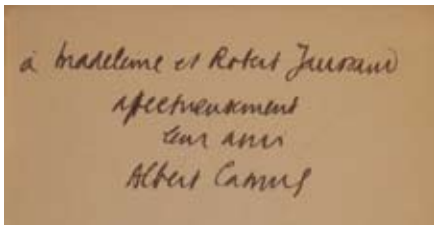 à Madeleine et Robert Jaussaud
affectueusement
leur ami
Albert Camus